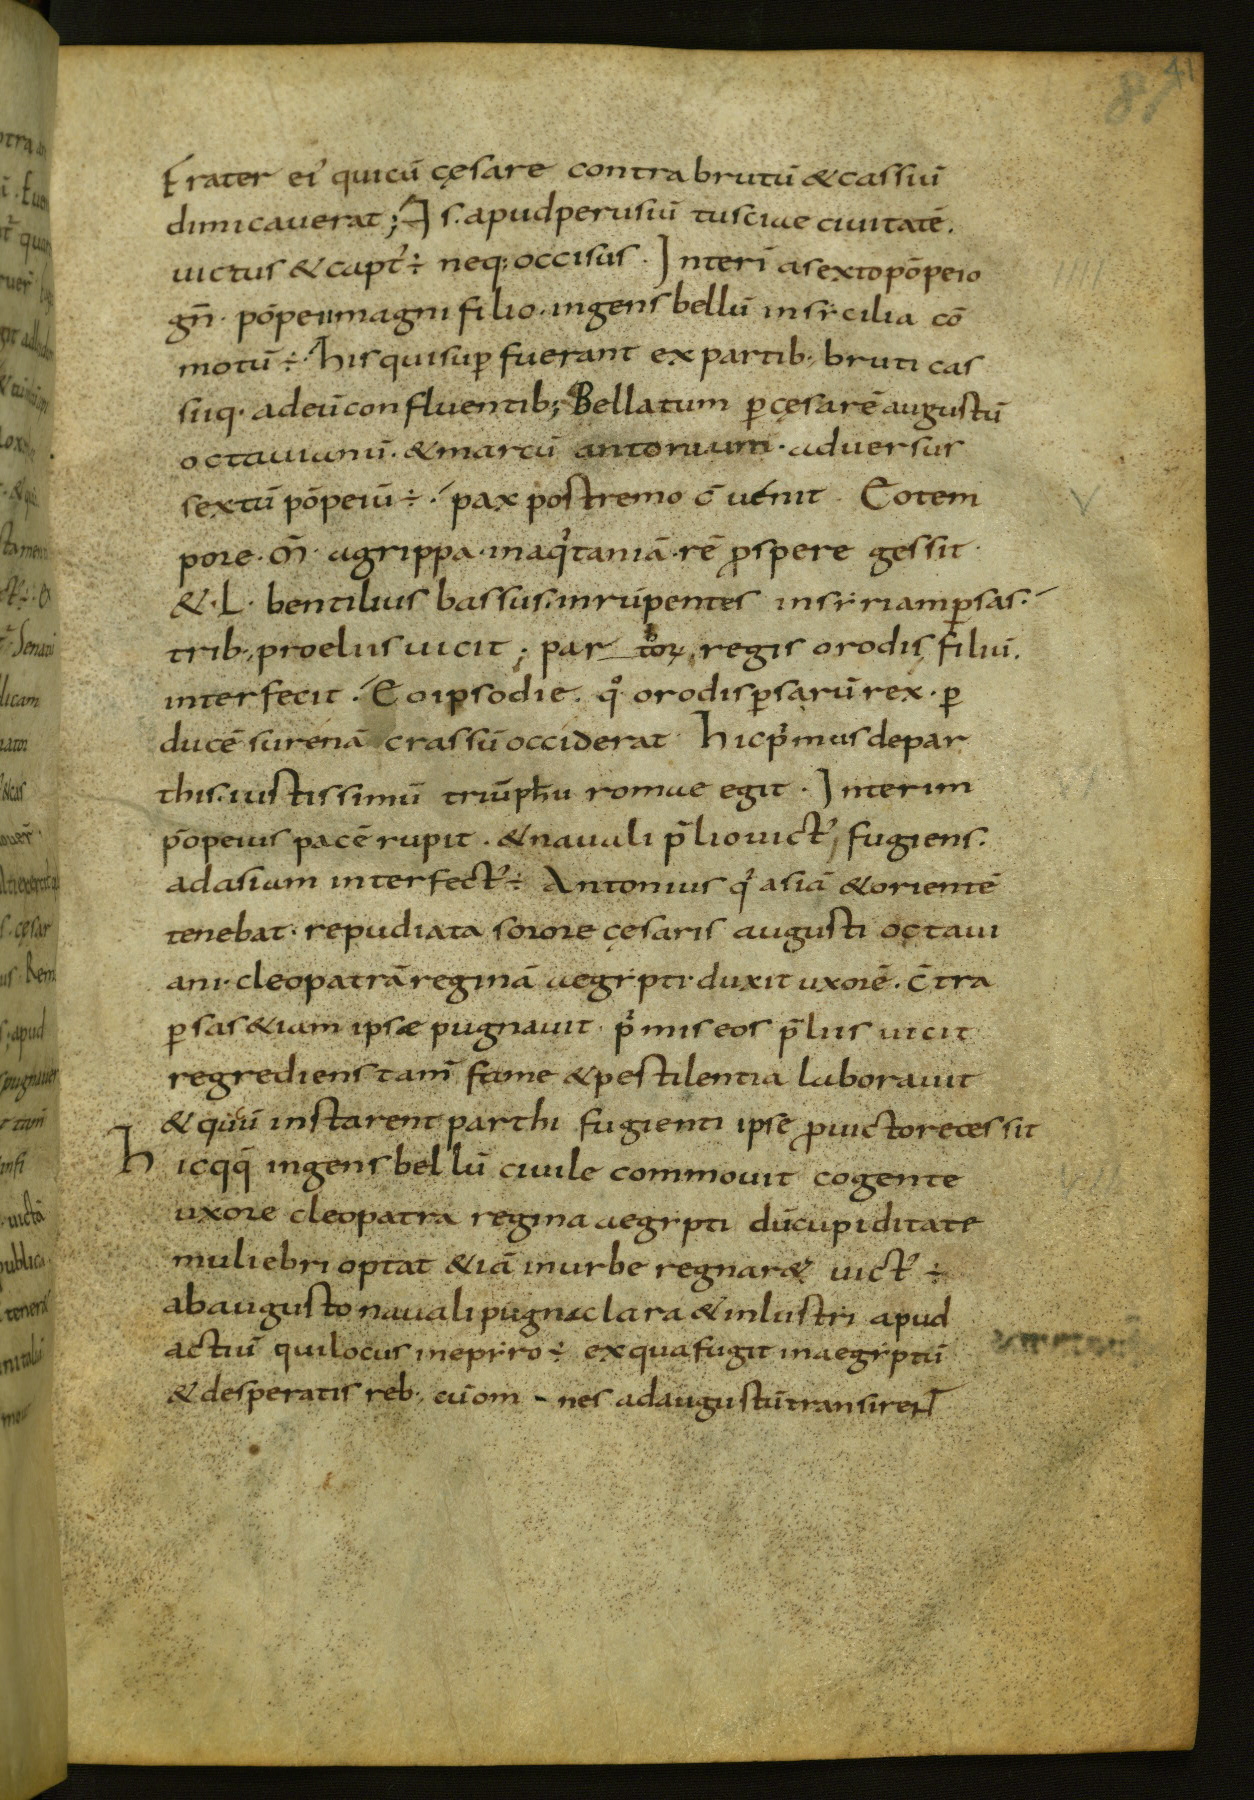 41
87
Frater ei' quicū cęsare contra brutū & cassiū
dimicauerat; Is. apud perusiū tusciae ciuitatē.
uictus & capt' ÷ neq: occisus. Interī a sexto pōpeio
gn̄. pōpeii magni filio. ingens bellū in sẏcilia cō
motū ÷ his qui sup fuerant ex partib; bruti cas
siiq. ad eū confluentib; Bellatum p cęsarē augustū
octauianū. & marcū antonium. aduersus
sextū pōpeiū ÷. pax postremo c̄uenit. Eo tem
pore. M̄. agrippa. in aq'taniā. rē prospere gessit.
&. L. bentilius bassus. inrūpentes in sẏriam persas.
trib; proeliis uicit; par thoꝝ regis orodis filiū.
interfecit. Eo ipso die. qo orodis persarū rex. p
ducē surenā crassū occiderat. hic p'mus de par
this. iustissimū triūphū romae egit. Interim
pōpeius pacē rupit. & nauali p̄lio uict' fugiens.
ad asiam interfect' ÷ Antonius q' asiā & orientē
tenebat. repudiata sorore cęsaris augusti octaui
ani. cleopatrā reginā aegẏpti. duxit uxorē. c̄tra
persas & iam ipse pugnauit. p'mis eos p̄liis uicit
regrediens tam̄ fame & pestilentia laborauit
& quū instarent parthi fugienti ipse pro uicto recessit
hic qq̄ ingens bellū ciuile commouit cogente
uxore cleopatra regina aegẏpti dū cupiditate
muliebri optat & iā in urbe regnare uict' ÷
ab augusto nauali pugna clara & inlustri apud
actiū qui locus in epẏro ÷ ex qua fugit in aegẏptū
& desperatis reb; cū om - nes ad augustū transirent
IIII
V
VI
VII